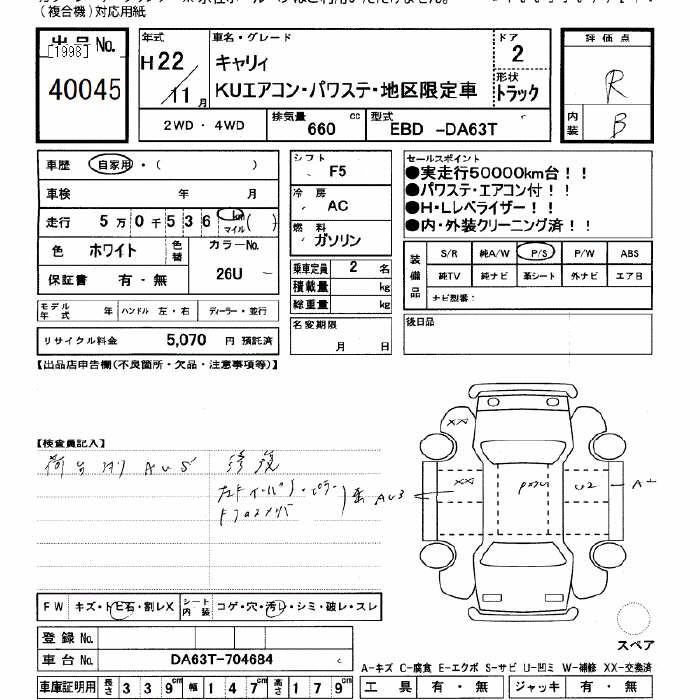 (複合機)対応用紙
出品 No.
[1998]
40045
年式
H22/11月
車名・グレード
キャリィ
KUエアコン・パワステ・地区限定車
ドア
2
形状
トラック
評価点
R
内装
B
2WD・4WD
排気量 660 cc
型式 EBD -DA63T
車歴 自家用・( )
車検 年 月
走行 5万0千536 km マイル ( )
色 ホワイト 色替 カラーNo.
保証書 有・無 26U
モデル年式 年 ハンドル 左・右 ディーラー・並行
リサイクル料金 5,070 円 預託済
シフト F5
冷房 AC
燃料 ガソリン
乗車定員 2 名
積載量 kg
総重量 kg
名変期限
月 日
セールスポイント
●実走行50000km台!!
●パワステ・エアコン付!!
●H・Lレベライザー!!
●内・外装クリーニング済!!
装備品
S/R 純A/W P/S P/W ABS
純TV 純ナビ 革シート 外ナビ エアB
ナビ型番:
後日品
【出品店申告欄(不良箇所・欠品・注意事項等)】
【検査員記入】
荷台内り AUS 修復
AU3
XX
XX
U2
FW キズ・トビ石・割レX シート内装 コゲ・穴・汚レ・シミ・破レ・スレ
登録 No.
車台 No. DA63T-704684
スペア
A-キズ C-腐食 E-エクボ S-サビ U-凹ミ W-補修 XX-交換済
車庫証明用 長さ 339cm 幅 147cm 高さ 179cm
工具 有・無 ジャッキ 有・無